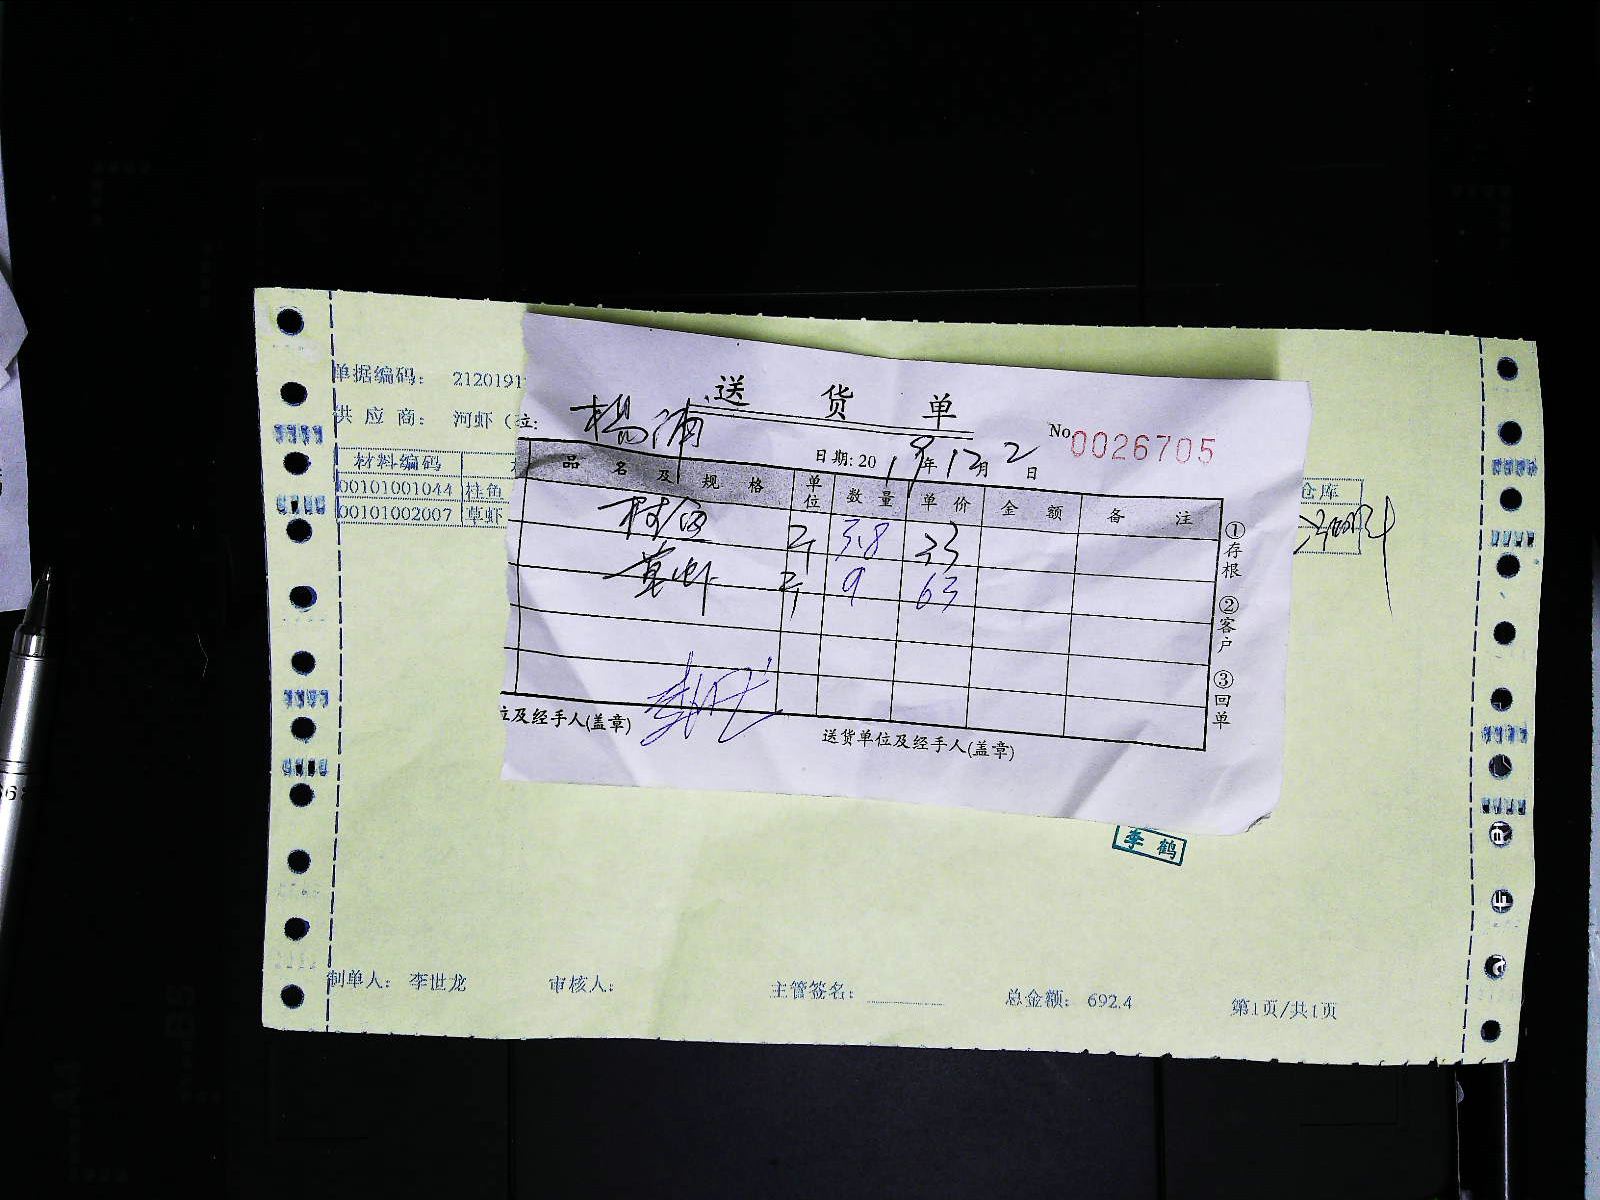 单据编码: 2120191
供应商: 河虾(
材料编码
00101001044 桂鱼
00101002007 草虾
仓库
送货单
位: 杨浦
日期: 2019年12月2日
No 0026705
品名及规格 单位 数量 单价 金额 备注
斤 3.8 33
草虾 斤 9 63
①存根 ②客户 ③回单
位及经手人(盖章)
送货单位及经手人(盖章)
李鹤
制单人: 李世龙 审核人: 主管签名: 总金额: 692.4 第1页/共1页